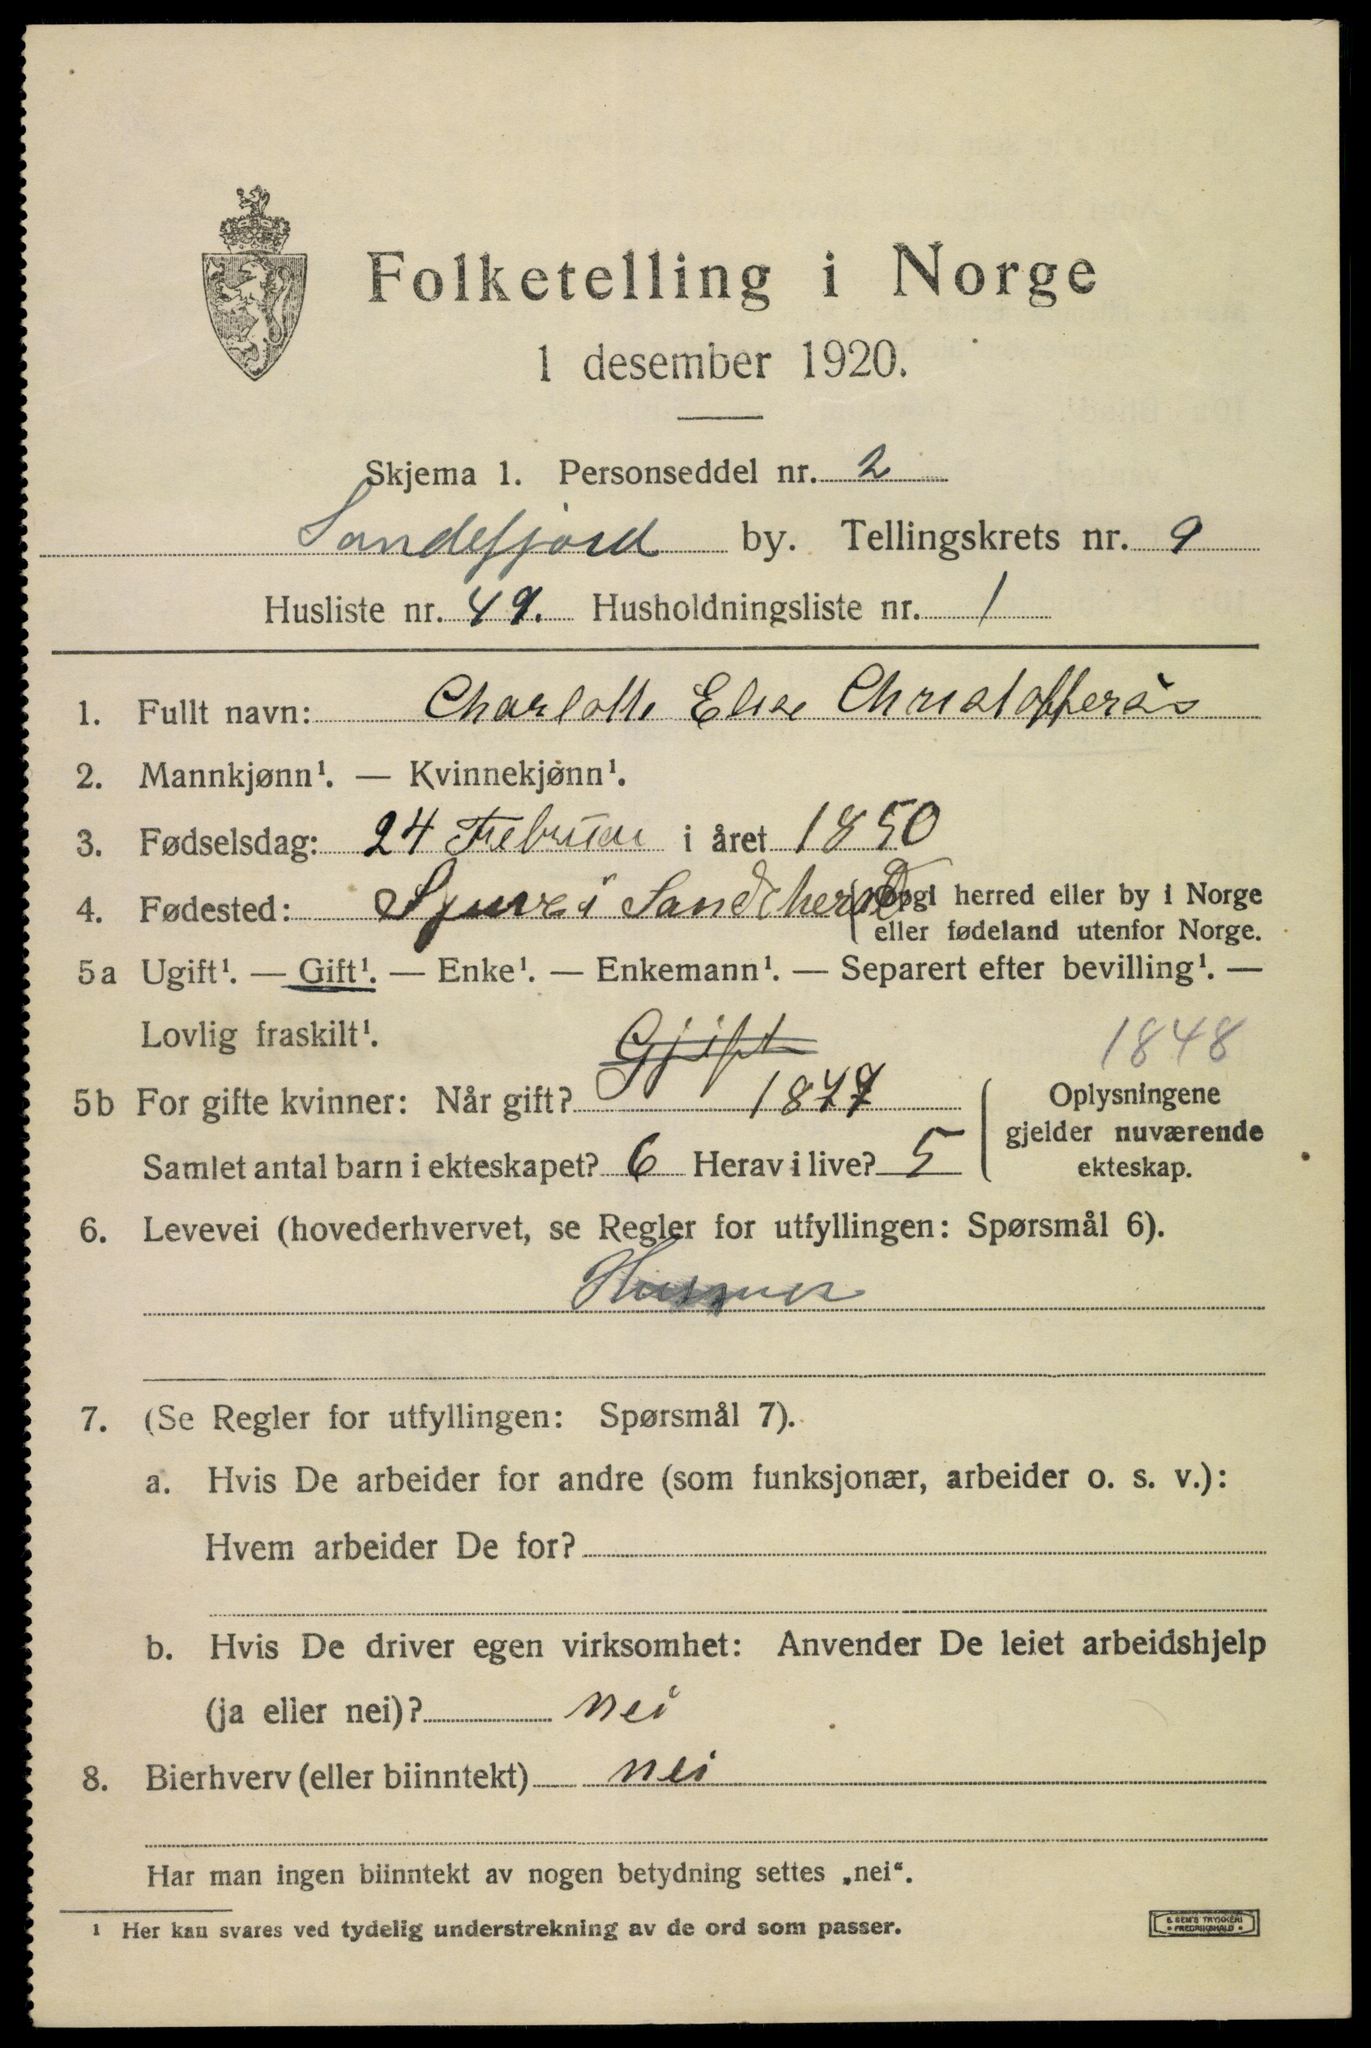 Folketelling i Norge
1 desember 1920.
Skjema 1. Personseddel nr. 2
Sandefjord by. Tellingskrets nr. 9
Husliste nr. 49. Husholdningsliste nr. 1
1. Fullt navn: Charlotte Elise
2. Mannkjønn¹. — Kvinnekjønn¹.
3. Fødselsdag: 24 Februar i året 1850
4. Fødested: i Sandeherred
Opgi herred eller by i Norge
eller fødeland utenfor Norge.
5a Ugift¹. — Gift¹. — Enke¹. — Enkemann¹. — Separert efter bevilling¹. —
Lovlig fraskilt¹. Gjift 1848
5b For gifte kvinner: Når gift? 1877
Samlet antal barn i ekteskapet? 6 Herav i live? 5
Oplysningene
gjelder nuværende
ekteskap.
6. Levevei (hovederhvervet, se Regler for utfyllingen: Spørsmål 6).
7. (Se Regler for utfyllingen: Spørsmål 7).
a. Hvis De arbeider for andre (som funksjonær, arbeider o. s. v.):
Hvem arbeider De for?
b. Hvis De driver egen virksomhet: Anvender De leiet arbeidshjelp
(ja eller nei)? nei
8. Bierhverv (eller biinntekt) nei
Har man ingen biinntekt av nogen betydning settes „nei“.
¹ Her kan svares ved tydelig understrekning av de ord som passer.
S. SEM'S TRYKKERI
• FREDRIKSHALD •